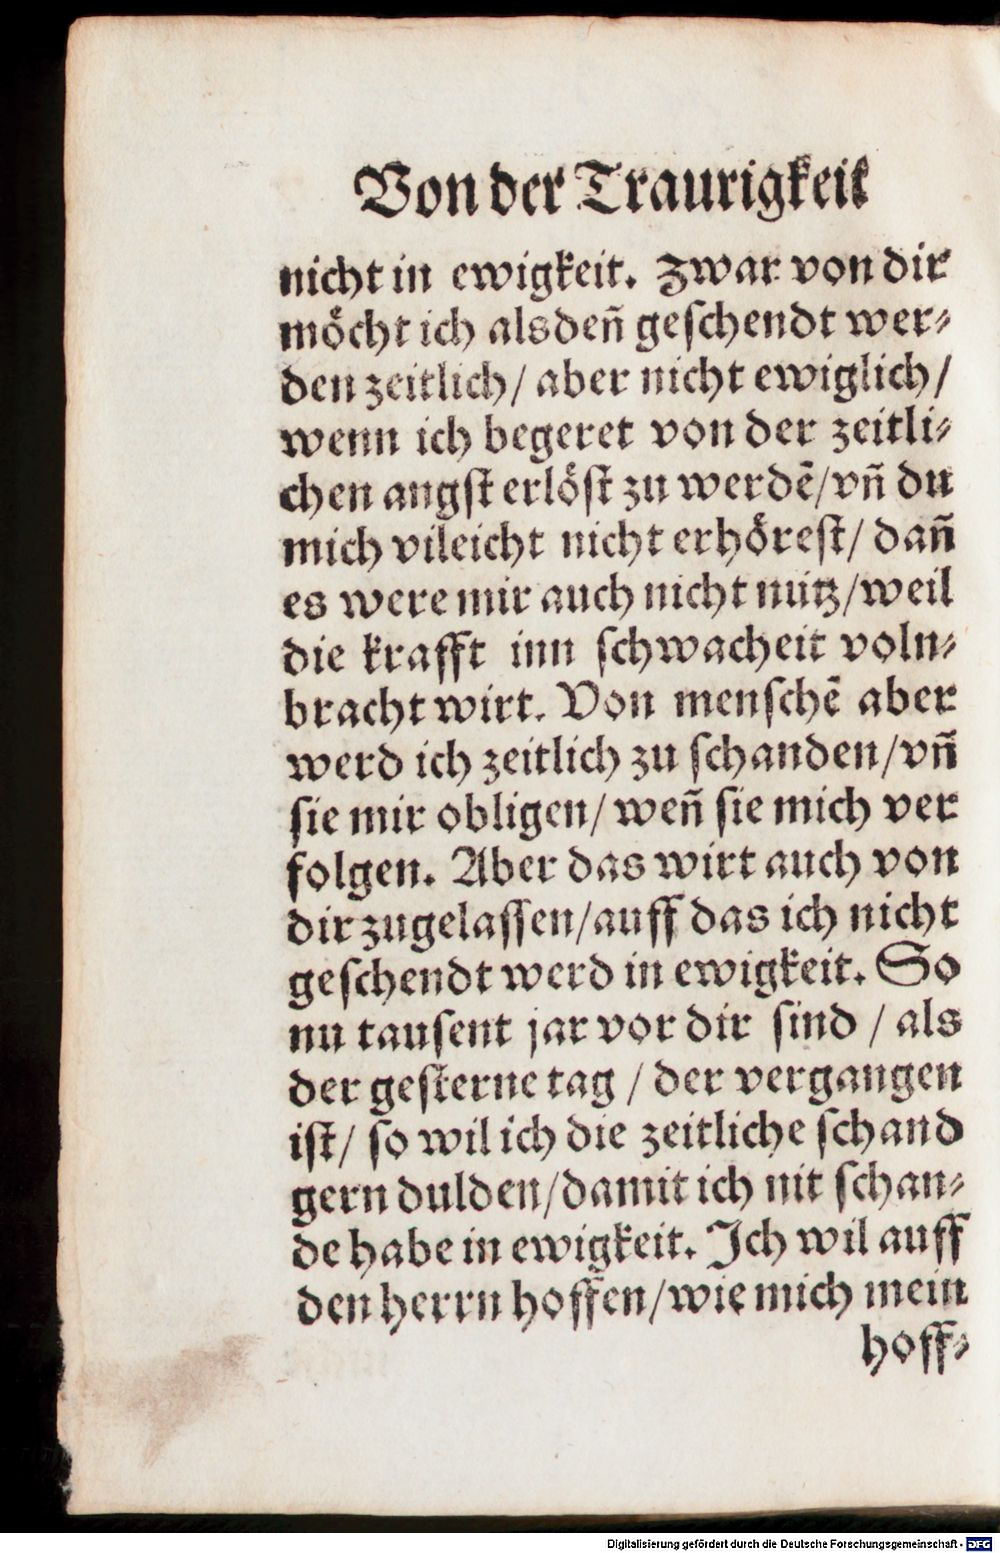 Von der Traurigkeit
nicht in ewigkeit. Zwar von dir
möcht ich alsdeñ geschendt wer⸗
den zeitlich/ aber nicht ewiglich/
wenn ich begeret von der zeitli⸗
chen angst erlöst zu werdẽ/vñ du
mich vileicht nicht erhörest/ dañ
es were mir auch nicht nütz/weil
die krafft inn schwacheit voln⸗
bracht wirt. Von menschẽ aber
werd ich zeitlich zu schanden/vñ
sie mir obligen/ weñ sie mich ver
folgen. Aber das wirt auch von
dir zugelassen/auff das ich nicht
geschendt werd in ewigkeit. So
nu tausent jar vor dir sind / als
der gesterne tag / der vergangen
ist/ so wil ich die zeitliche schand
gern dulden/damit ich nit schan⸗
de habe in ewigkeit. Ich wil auff
den herrn hoffen/wie mich mein
hoff⸗
Digitalisierung gefördert durch die Deutsche Forschungsgemeinschaft - DFG